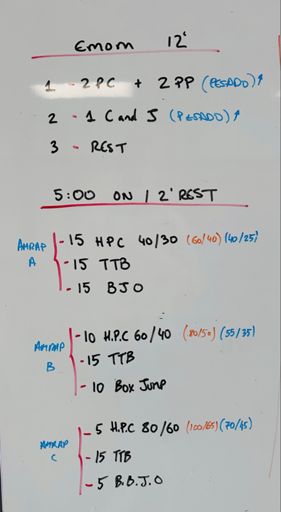 EMOM 12'
1 - 2 PC + 2 PP (PESADO)↑
2 - 1 C and J (PESADO)↑
3 - REST
5:00 ON / 2' REST
AMRAP A
- 15 HPC 40/30 (60/40) (40/25)
- 15 TTB
- 15 BJO
AMRAP B
- 10 H.P.C 60/40 (80/50) (55/35)
- 15 TTB
- 10 Box Jump
AMRAP C
- 5 H.P.C 80/60 (100/65) (70/45)
- 15 TTB
- 5 B.B.J.O